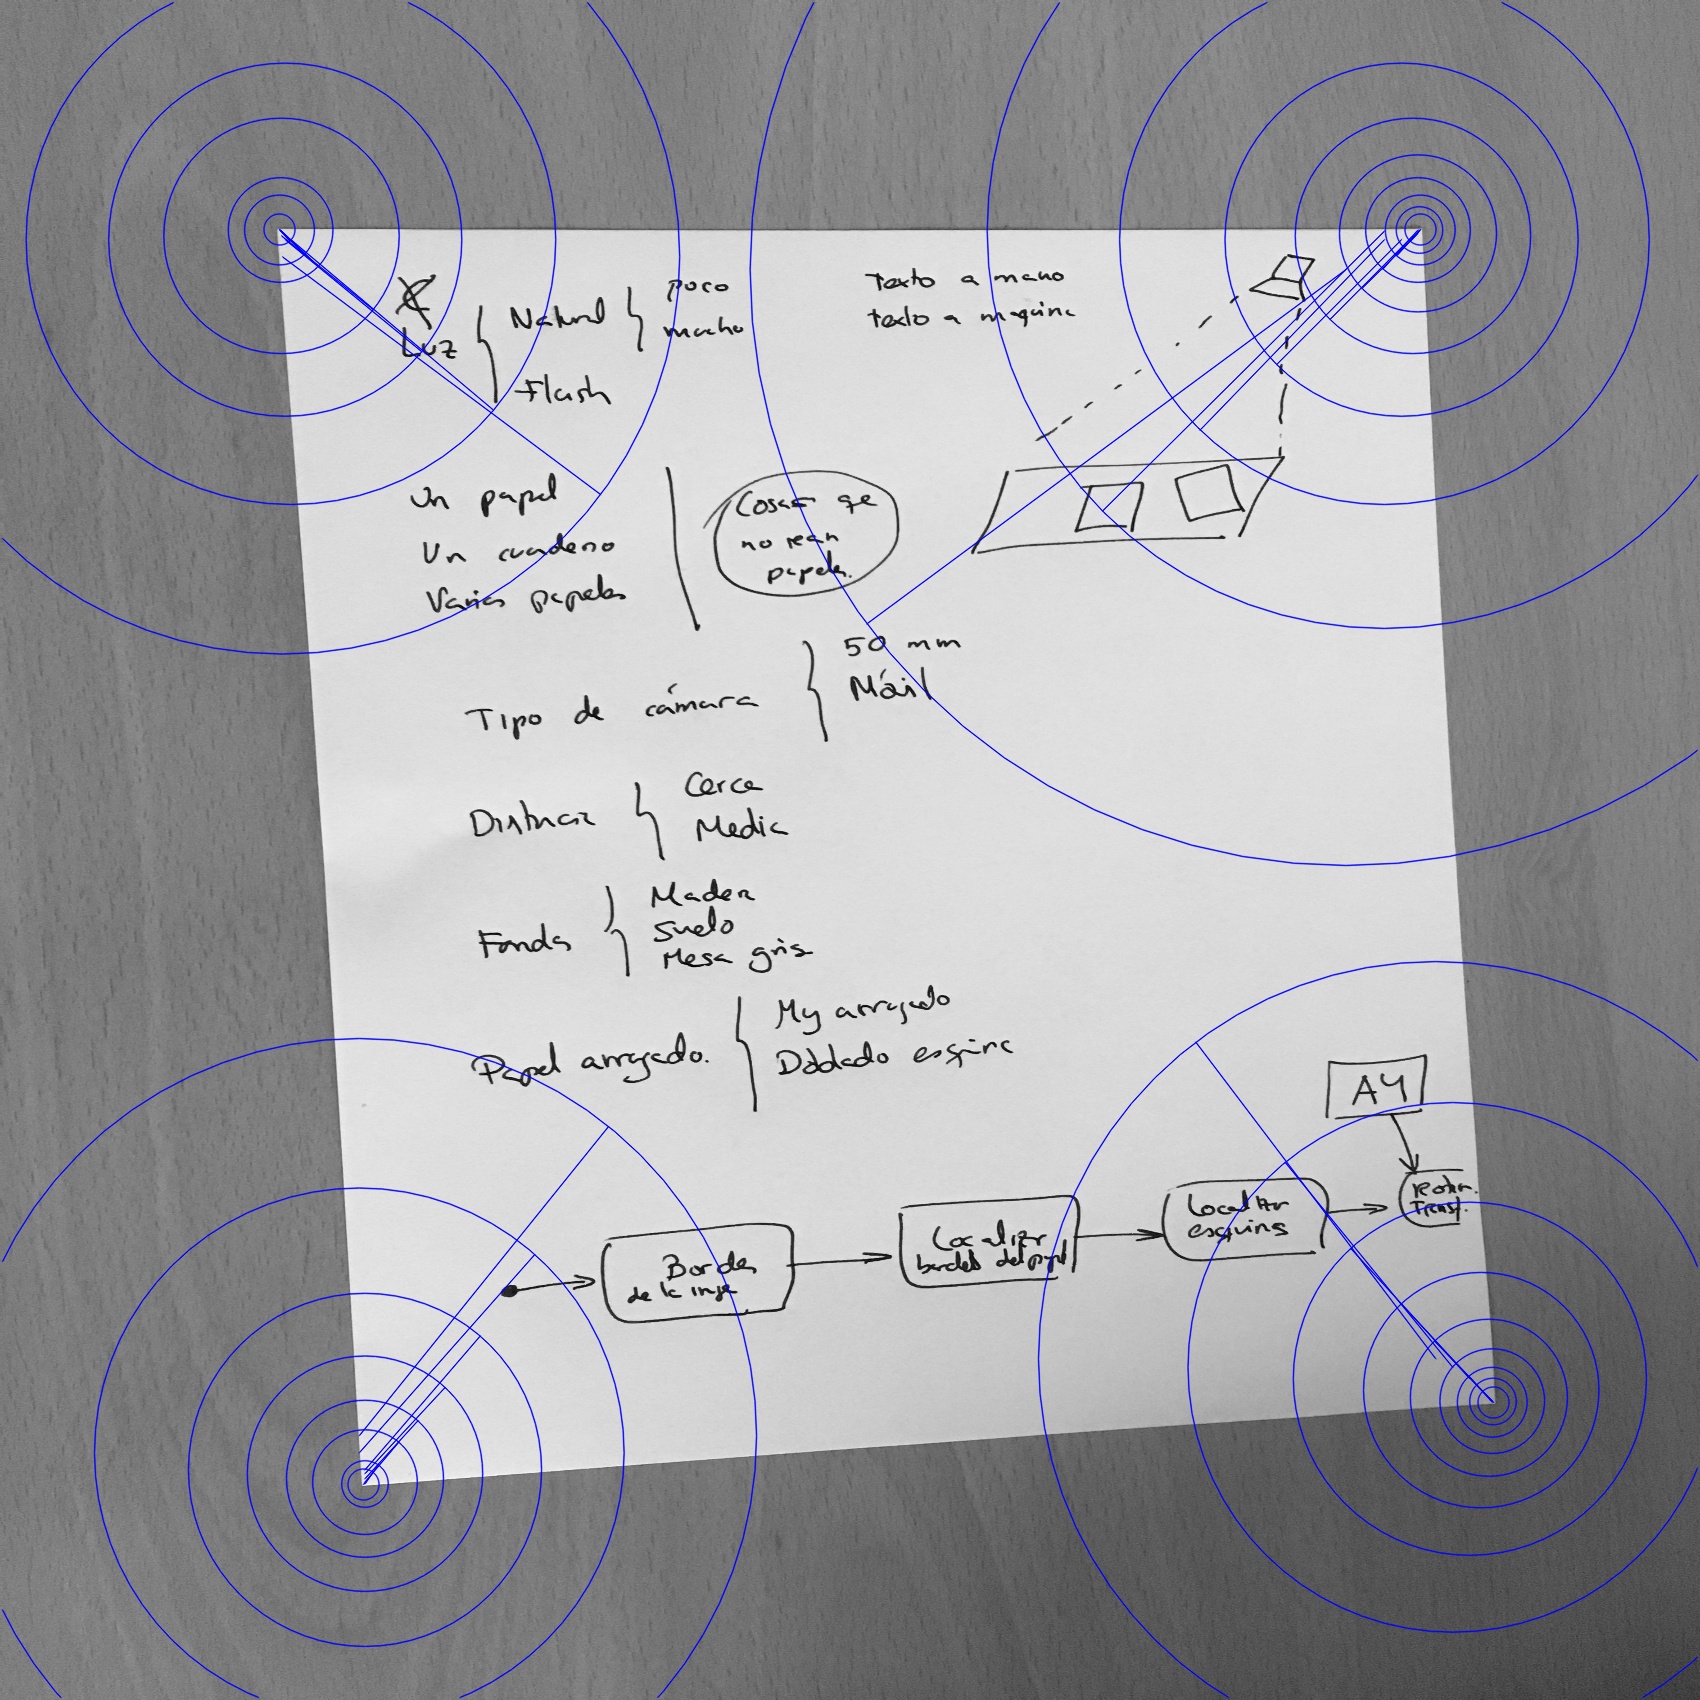 Luz
Natural
poco
mucho
Flash
Texto a mano
texto a maquina
Un papel
Un cuaderno
Varios papeles
Cosas qe
no sean
papeles.
Tipo de cámara
50 mm
Móvil
Distancia
Cerca
Media
Fondo
Madera
Suelo
Mesa gris
Papel arrugado.
My arrugado
Doblado esquina
A4
Bordes
de la
Localizar
bordes del papel
Localizar
esquinas
Transf.